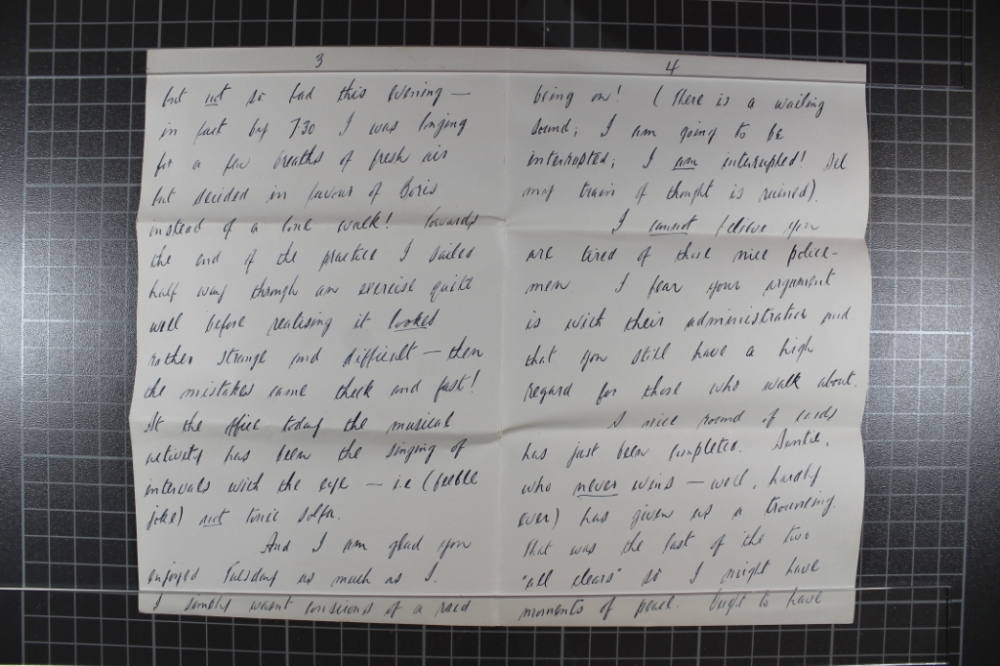 3
but not so bad this evening —
in fact by 7.30 I was longing
for a few breaths of fresh air
but decided in favour of Boris
instead of a walk! Towards
the end of the practice I sailed
half way through an exercise quite
well before realising it looked
rather strange and difficult — then
the mistakes came thick and fast!
At the office today the musical
activity has been the singing of
intervals with the eye — i.e. (feeble
joke) not tonic solfa.
And I am glad you
enjoyed Tuesday as much as I.
I simply wasnt conscious of a raid
4
being on! (There is a wailing
sound; I am going to be
interrupted; I am interrupted!
my train of thought is ruined).
I cannot believe you
are tired of those nice police-
men I fear your argument
is with their administration and
that you still have a high
regard for those who walk about.
A nice round of cards
has just been completed. Auntie,
who never wins — well, hardly
ever) has given us a trouncing.
That was the last of the two
"all clears" so I might have
moments of peace. Ought to have